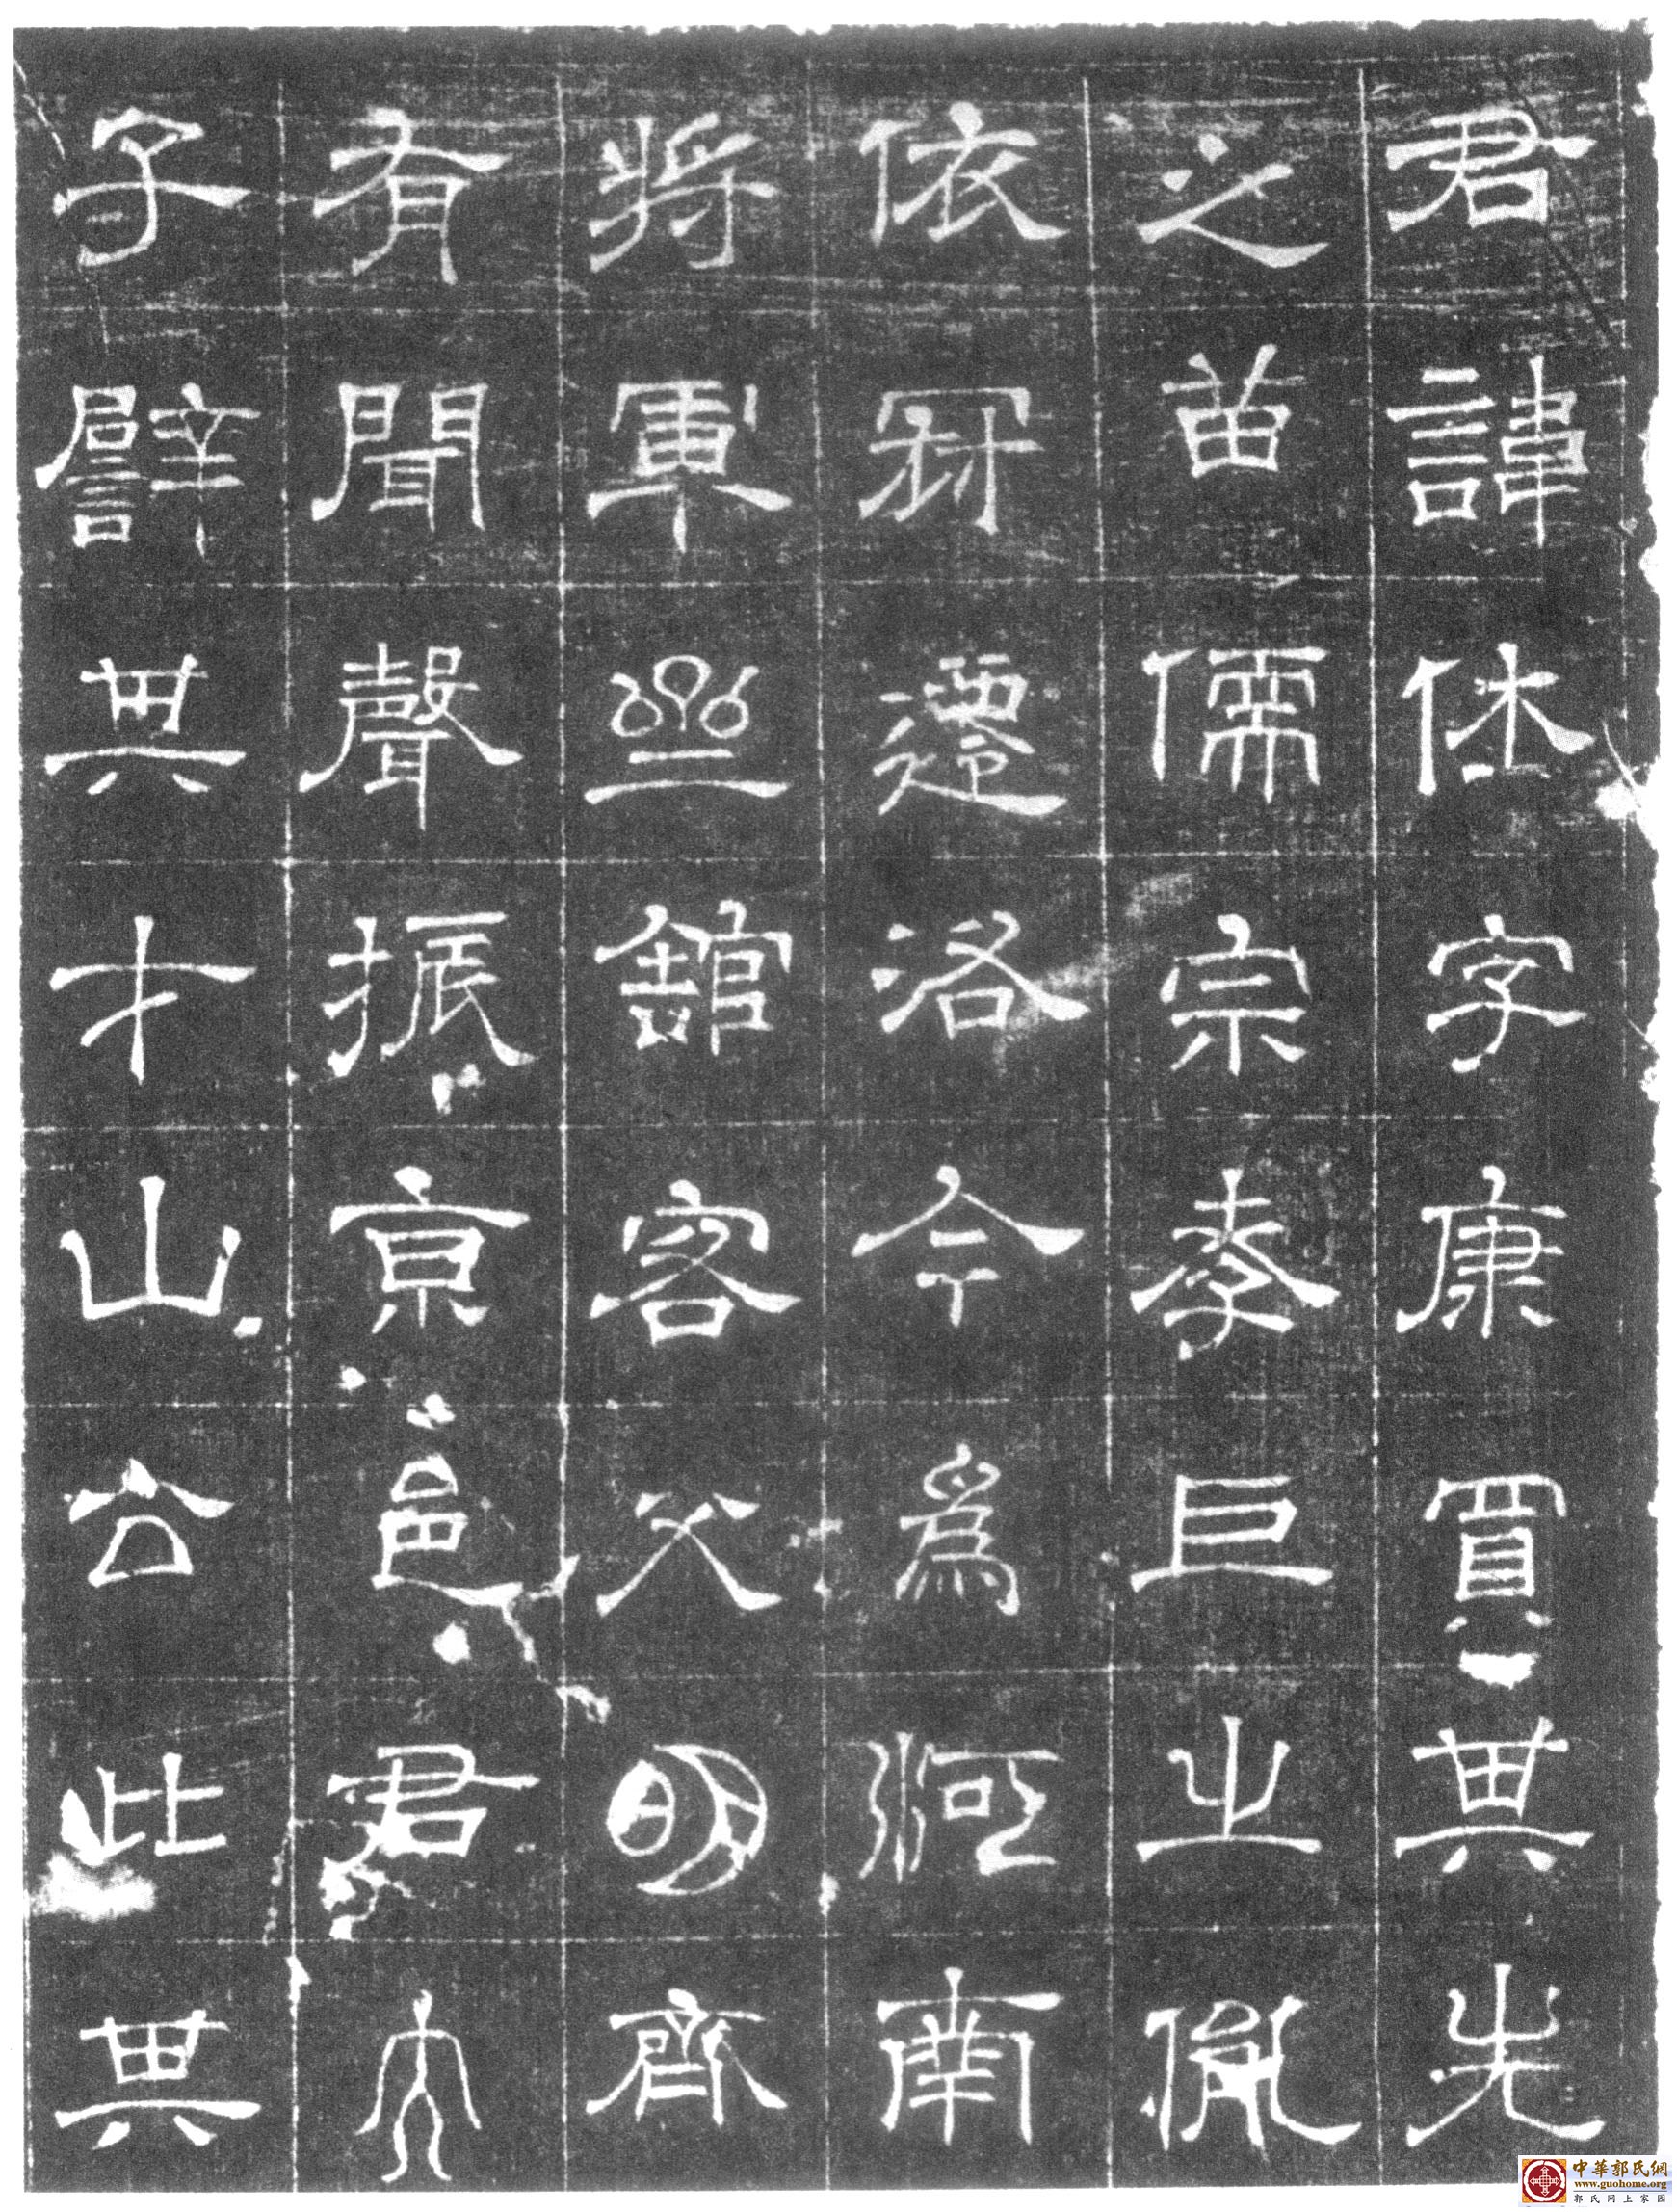 君諱休字康買其先
之苗儒宗孝巨之胤
依遷洛今爲河南
將軍齊館客父明齊
有聞聲振亰邑君
子譬其才山公比其
中華郭氏網
www.guohome.org
郭氏网上家园